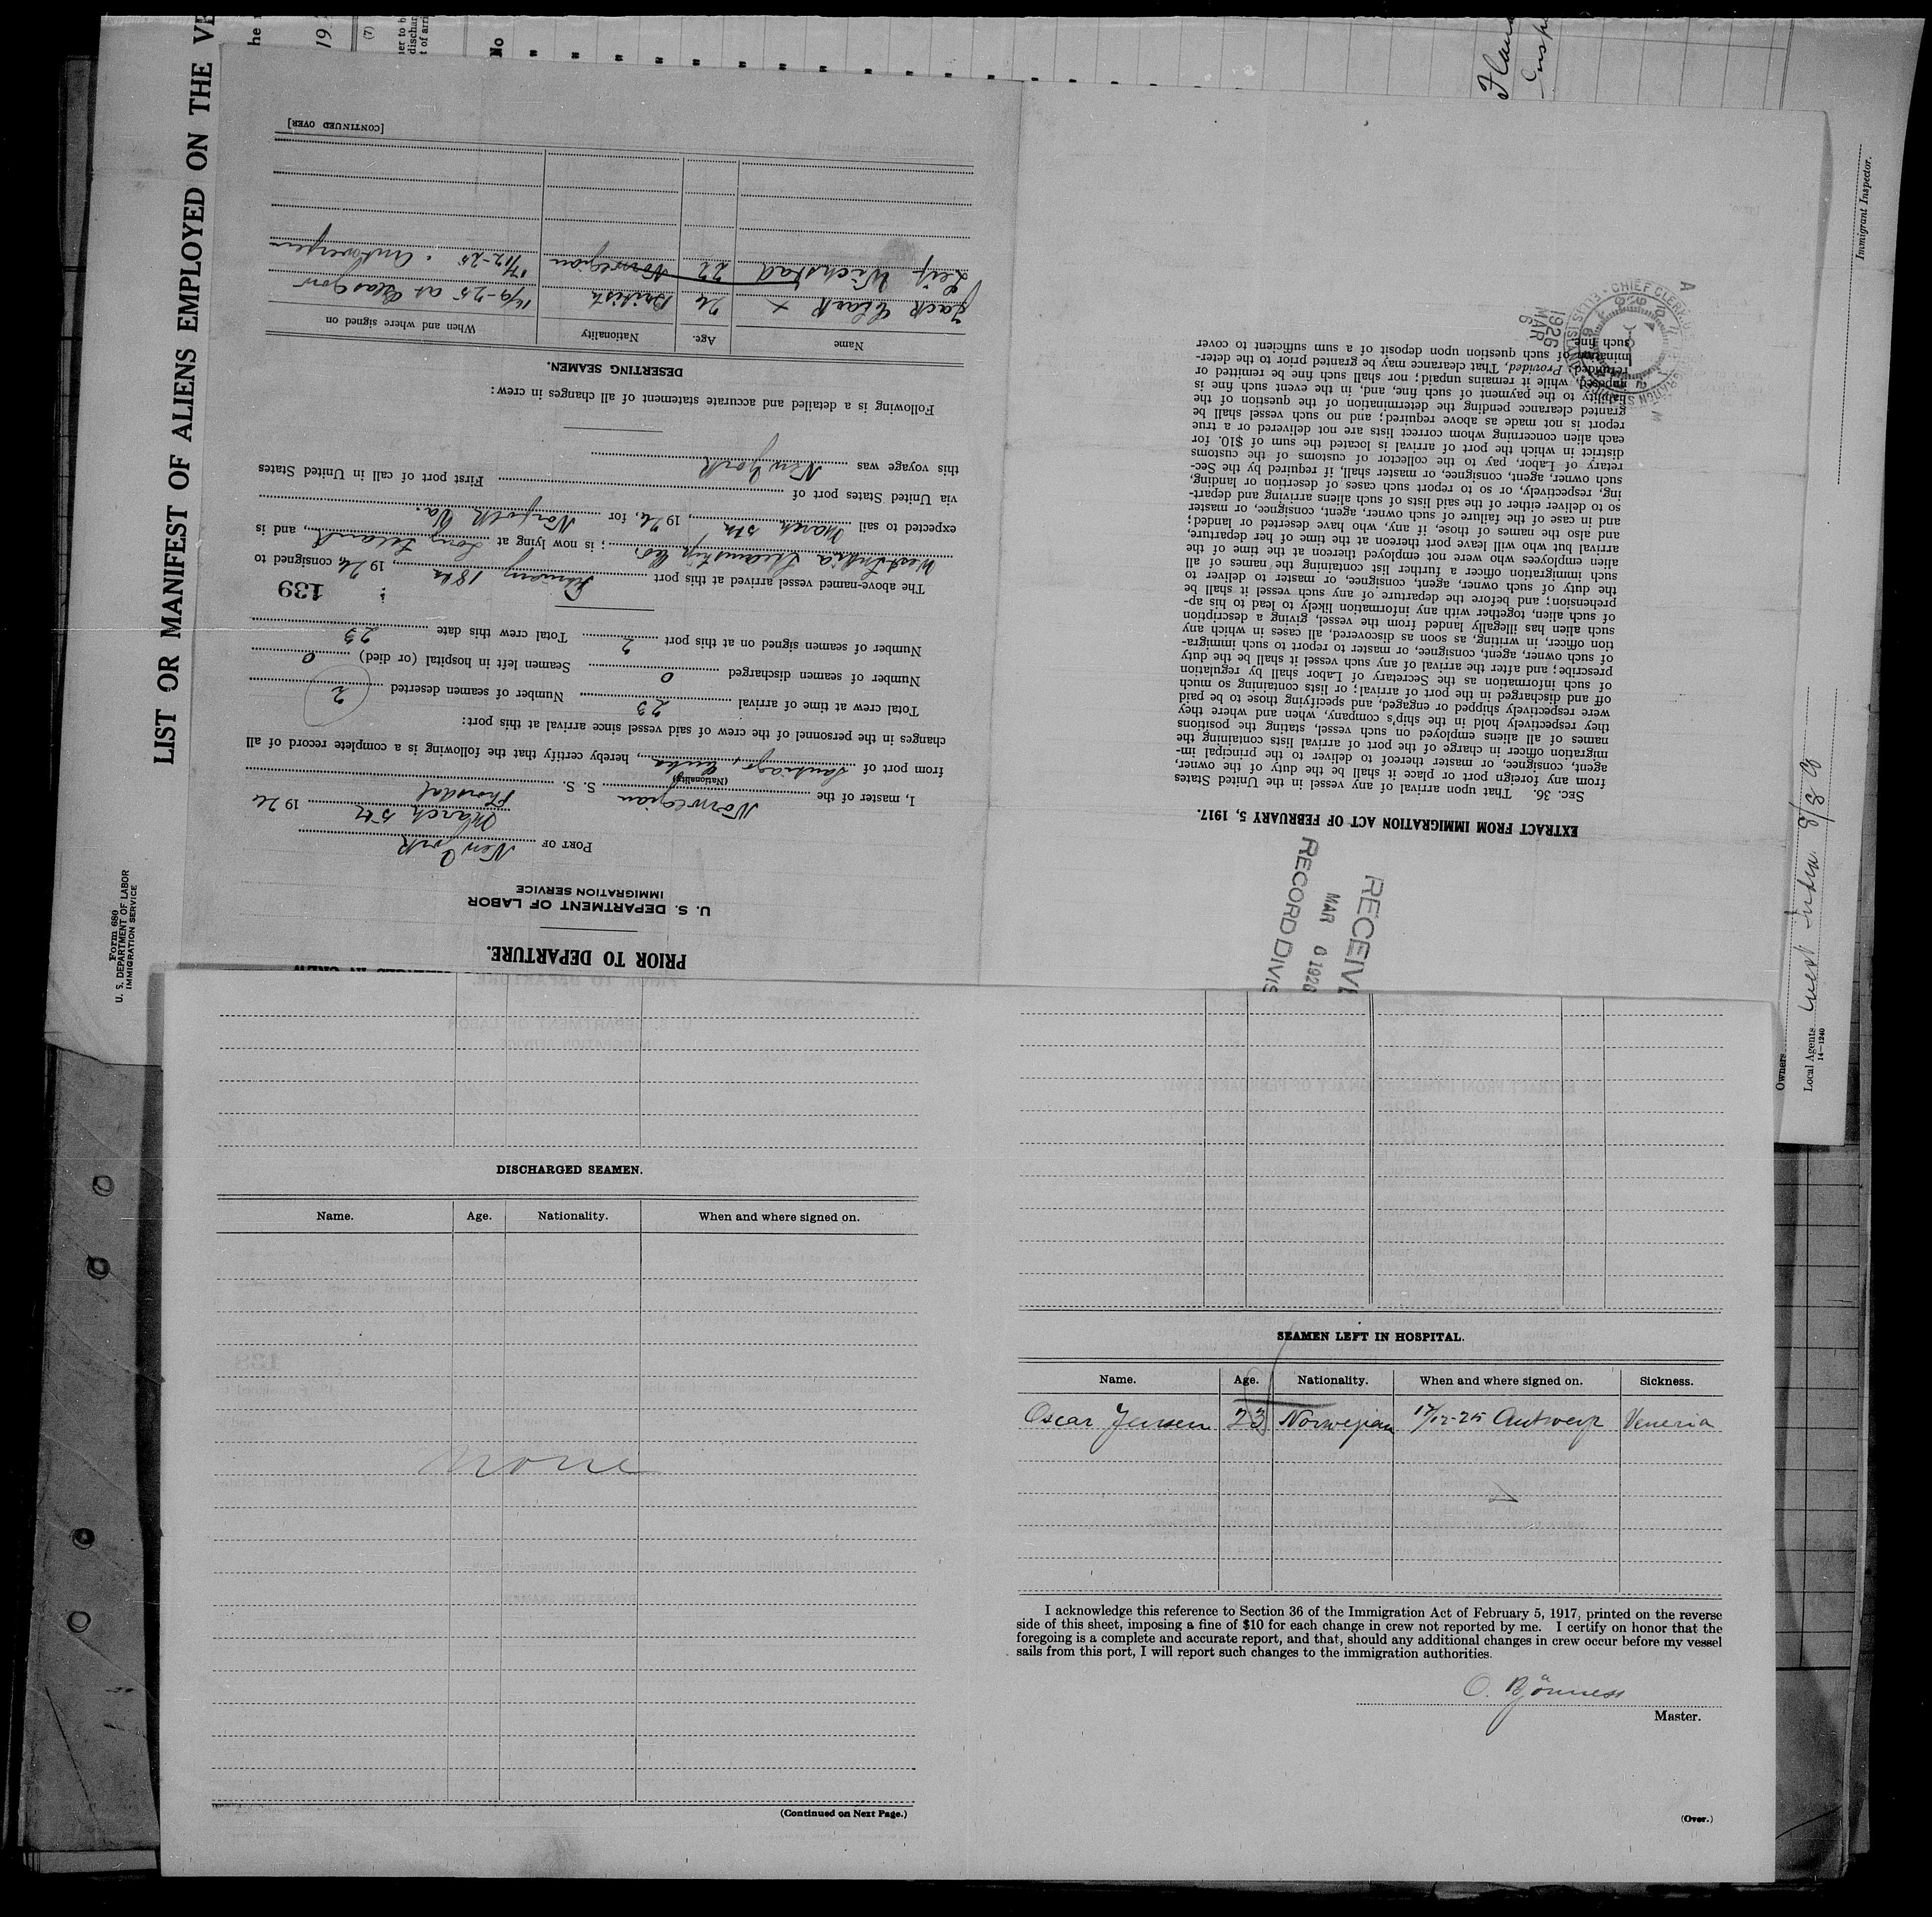 LIST OR MANIFEST OF ALIENS EMPLOYED ON THE VE
Form 680
U. S. DEPARTMENT OF LABOR
IMMIGRATION SERVICE
No
Immigrant Inspector.
Owners
Local Agents West India S/S Co
14-1240
PRIOR TO DEPARTURE.
U. S. DEPARTMENT OF LABOR
IMMIGRATION SERVICE
PORT OF New York
March 5th 1926
I, master of the Norwegian S. S. Thorsdal
(Nationality)
from port of Santiago, Cuba, hereby certify that the following is a complete record of all
changes in the personnel of the crew of said vessel since arrival at this port:
Total crew at time of arrival 23 Number of seamen deserted 2
Number of seamen discharged 0 Seamen left in hospital (or died) 0
Number of seamen signed on at this port 2 Total crew this date 23
139
The above-named vessel arrived at this port 18th, 1926, consigned to
West India Steamship Co.; is now lying at Long Island, and is
expected to sail March 5th, 1926, for Norfolk Va.
via United States port of First port of call in United States
this voyage was New York
Following is a detailed and accurate statement of all changes in crew:
DESERTING SEAMEN.
Name Age. Nationality When and where signed on
Jack Clark x 26 British 16/9-25 at Glasgow
Leif Wichstad 22 Norwegian 17/12-25 " Antwerpen
[CONTINUED OVER]
RECEIVE
MAR 6 1926
RECORD DIVIS
EXTRACT FROM IMMIGRATION ACT OF FEBRUARY 5, 1917.
SEC. 36. That upon arrival of any vessel in the United States
from any foreign port or place it shall be the duty of the owner,
agent, consignee, or master thereof to deliver to the principal im-
migration officer in charge of the port of arrival lists containing the
names of all aliens employed on such vessel, stating the positions
they respectively hold in the ship's company, when and where they
were respectively shipped or engaged, and specifying those to be paid
off and discharged in the port of arrival; or lists containing so much
of such information as the Secretary of Labor shall by regulation
prescribe; and after the arrival of any such vessel it shall be the duty
of such owner, agent, consignee, or master to report to such immigra-
tion officer, in writing, as soon as discovered, all cases in which any
such alien has illegally landed from the vessel, giving a description
of such alien, together with any information likely to lead to his ap-
prehension; and before the departure of any such vessel it shall be
the duty of such owner, agent, consignee, or master to deliver to
such immigration officer a further list containing the names of all
alien employees who were not employed thereon at the time of the
arrival but who will leave port thereon at the time of her departure,
and also the names of those, if any, who have deserted or landed;
and in case of the failure of such owner, agent, consignee, or master
so to deliver either of the said lists of such aliens arriving and depart-
ing, respectively, or so to report such cases of desertion or landing,
such owner, agent, consignee, or master shall, if required by the Sec-
retary of Labor, pay to the collector of customs of the customs
district in which the port of arrival is located the sum of $10 for
each alien concerning whom correct lists are not delivered or a true
report is not made as above required; and no such vessel shall be
granted clearance pending the determination of the question of the
liability to the payment of such fine, and, in the event such fine is
imposed, while it remains unpaid; nor shall such fine be remitted or
refunded: Provided, That clearance may be granted prior to the deter-
mination of such question upon deposit of a sum sufficient to cover
such fine.
1926
MAR
6
DISCHARGED SEAMEN.
Name. Age. Nationality. When and where signed on.
None
(Continued on Next Page.)
SEAMEN LEFT IN HOSPITAL.
Name. Age. Nationality. When and where signed on. Sickness.
Oscar Jensen 23 Norwegian 17/12-25 Antwerp Veneria
I acknowledge this reference to Section 36 of the Immigration Act of February 5, 1917, printed on the reverse
side of this sheet, imposing a fine of $10 for each change in crew not reported by me. I certify on honor that the
foregoing is a complete and accurate report, and that, should any additional changes in crew occur before my vessel
sails from this port, I will report such changes to the immigration authorities.
O. Bjönness
Master.
(Over.)